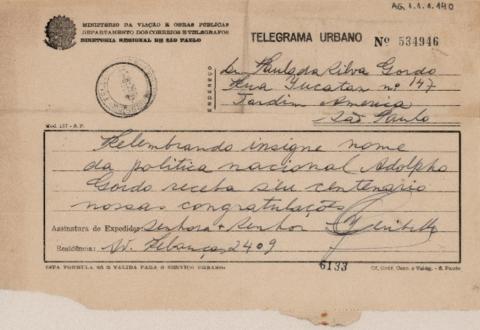 AG.1.1.1.140
MINISTERIO DA VIAÇÃO E OBRAS PÚBLICAS
DEPARTAMENTO DOS CORREIOS E TELÉGRAFOS
DIRETORIA REGIONAL DE SÃO PAULO
TELEGRAMA URBANO Nº 534946
ENDEREÇO
Paula da Silva Gordo
Rua Yucatan nº 147
Jardim America
São Paulo
Mod. 157 - S. P.
Relembrando insigne nome
da politica nacional Adolpho
Gordo receba seu centenario
nossas congratulações
Assinatura do Expedidor: Senhora e Senhor
Residência: Av. 2409
ESTA FORMULA SÓ É VALIDA PARA O SERVIÇO URBANO
6133
S. Paulo